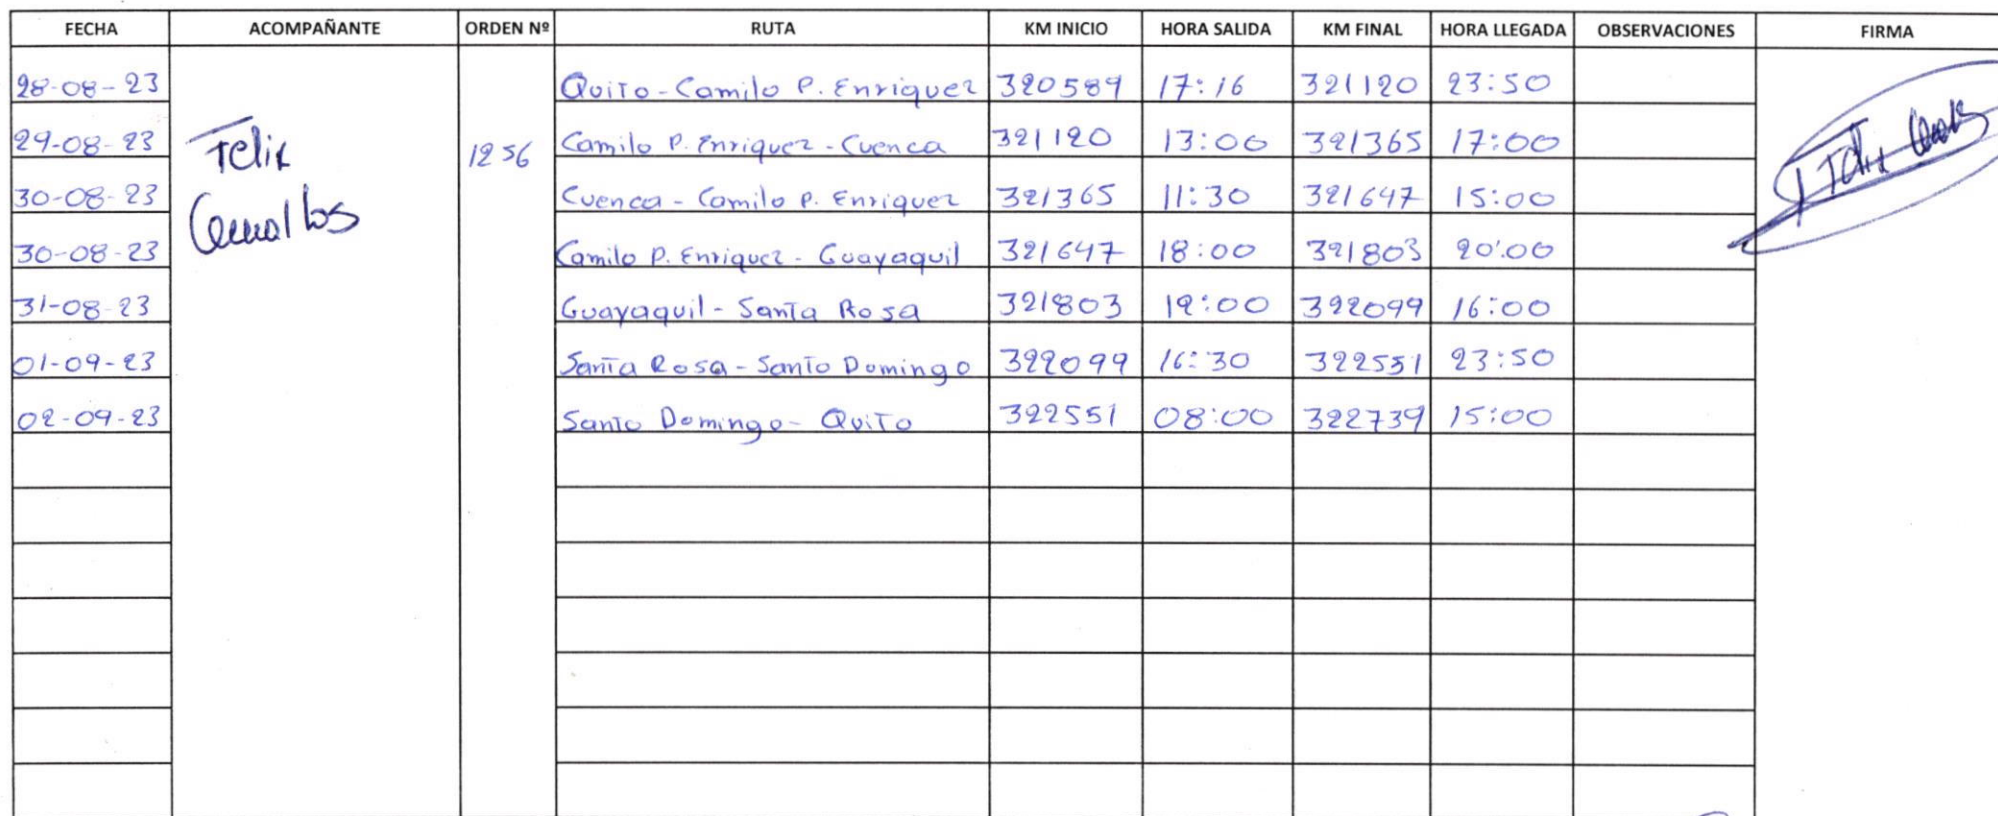 FECHA ACOMPAÑANTE ORDEN Nº RUTA KM INICIO HORA SALIDA KM FINAL HORA LLEGADA OBSERVACIONES FIRMA
28-08-23 Quito - Camilo P. Enriquez 320589 17:16 321120 23:50
29-08-23 Felix 1256 Camilo P. Enriquez - Cuenca 321120 13:00 321365 17:00
30-08-23 Cuenca - Camilo P. Enriquez 321365 11:30 321647 15:00
30-08-23 Camilo P. Enriquez - Guayaquil 321647 18:00 321803 20:00
31-08-23 Guayaquil - Santa Rosa 321803 12:00 322099 16:00
01-09-23 Santa Rosa - Santo Domingo 322099 16:30 322551 23:50
02-09-23 Santo Domingo - Quito 322551 08:00 322739 15:00